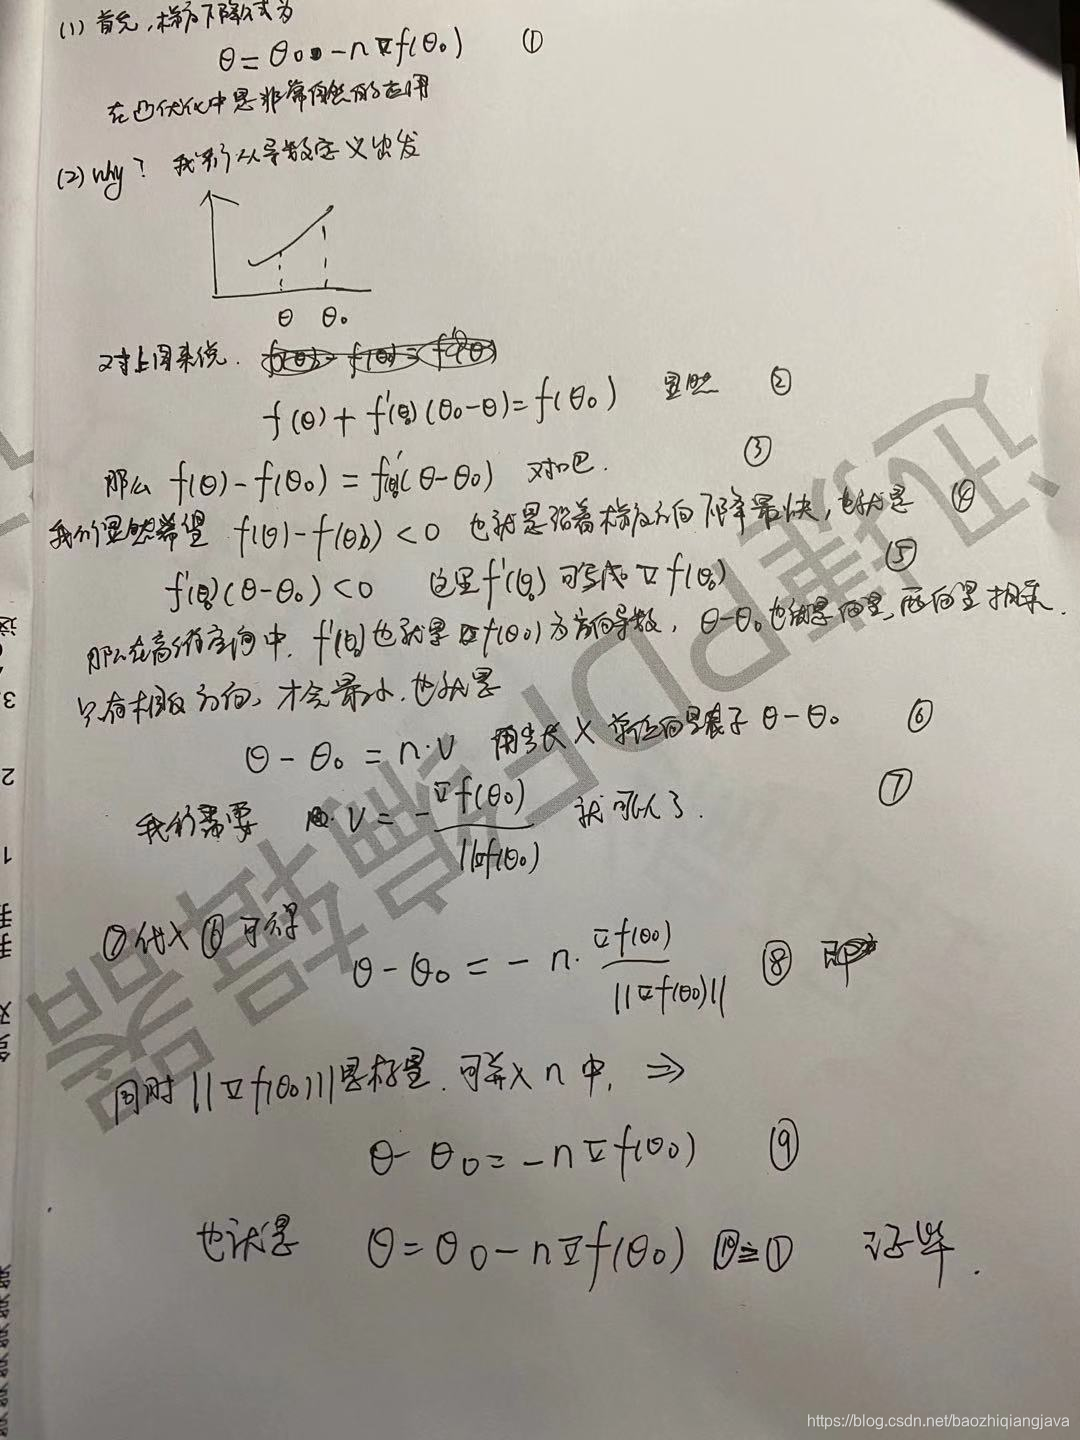 (1) 首先，梯度下降公式为
θ = θ₀ - n∇f(θ₀) ①
在凸优化中是非常自然的应用
(2) why? 我们从导数定义出发
θ θ₀
对上图来说.
f(θ) + f'(θ₀)(θ₀-θ) = f(θ₀) 显然 ②
那么 f(θ) - f(θ₀) = f'(θ₀)(θ-θ₀) 对吧. ③
我们显然希望 f(θ) - f(θ₀) < 0 也就是沿着梯度方向下降最快，也就是 ④
f'(θ₀)(θ-θ₀) < 0 这里 f'(θ₀) 可写成 ∇f(θ₀) ⑤
那么在高维空间中, f'(θ₀) 也就是 ∇f(θ₀) 为方向导数，θ-θ₀ 也就是向量，两向量相乘.
只有相反方向，才会最小. 也就是
θ - θ₀ = n·v 用步长 × 单位向量表示 θ - θ₀ ⑥
我们需要 v = - ∇f(θ₀) / ||∇f(θ₀) 就可以了. ⑦
⑦代入⑥可得
θ - θ₀ = - n · ∇f(θ₀) / ||∇f(θ₀)|| ⑧
同时 ||∇f(θ₀)|| 是标量. 可并入 n 中, ⇒
θ - θ₀ = -n∇f(θ₀) ⑨
也就是 θ = θ₀ - n∇f(θ₀) ⑩ = ① 证毕.
迅捷PDF编辑器
3.
2
1
https://blog.csdn.net/baozhiqiangjava